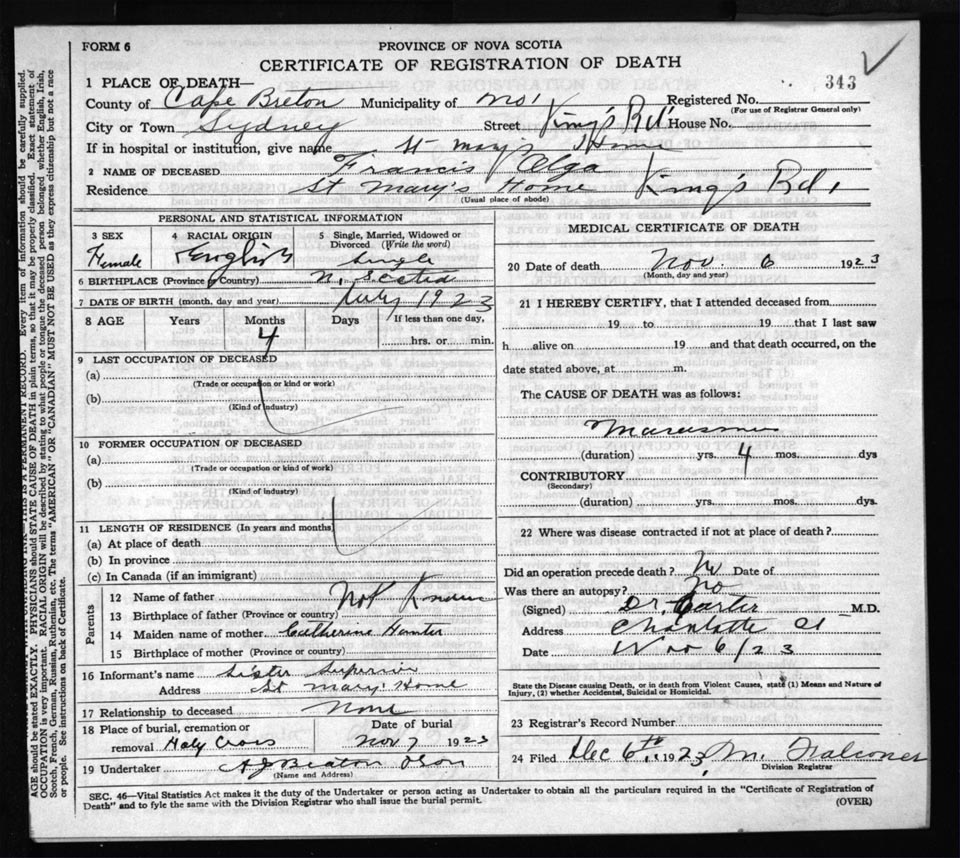 FORM 6
PROVINCE OF NOVA SCOTIA
CERTIFICATE OF REGISTRATION OF DEATH
343
1 PLACE OF DEATH—
County of Cape Breton Municipality of Registered No.
(For use of Registrar General only)
City or Town Sydney Street King's Rd. House No.
If in hospital or institution, give name St Mary's Home
2 NAME OF DECEASED Francis Olga
Residence St Mary's Home King's Rd.
(Usual place of abode)
PERSONAL AND STATISTICAL INFORMATION
3 SEX
Female
4 RACIAL ORIGIN
English
5 Single, Married, Widowed or Divorced (Write the word)
Single
6 BIRTHPLACE (Province or Country) N. Scotia
7 DATE OF BIRTH (month, day and year) July 1923
8 AGE Years Months Days If less than one day,
4 hrs. or min.
9 LAST OCCUPATION OF DECEASED
(a)
(Trade or occupation or kind or work)
(b)
(Kind of industry)
10 FORMER OCCUPATION OF DECEASED
(a)
(Trade or occupation or kind or work)
(b)
(Kind of industry)
11 LENGTH OF RESIDENCE (In years and months)
(a) At place of death
(b) In province
(c) In Canada (if an immigrant)
Parents
12 Name of father Not Known
13 Birthplace of father (Province or country)
14 Maiden name of mother Catherine Hunter
15 Birthplace of mother (Province or country)
16 Informant's name Sister Superior
Address St Mary's Home
17 Relationship to deceased None
18 Place of burial, cremation or removal Holy Cross
Date of burial
Nov 7 1923
19 Undertaker A J Beaton & Son
(Name and Address)
MEDICAL CERTIFICATE OF DEATH
20 Date of death Nov. 6 1923
(Month, day and year)
21 I HEREBY CERTIFY, that I attended deceased from
19 to 19 that I last saw
h alive on 19 and that death occurred, on the
date stated above, at m.
The CAUSE OF DEATH was as follows:
Marasmus
(duration) yrs. 4 mos. dys
CONTRIBUTORY
(Secondary)
(duration) yrs. mos. dys.
22 Where was disease contracted if not at place of death?
Did an operation precede death? No Date of
Was there an autopsy? No
(Signed) Dr. Carter M.D.
Address Charlotte St
Date Nov 6/23
State the Disease causing Death, or in death from Violent Causes, state (1) Means and Nature of
Injury, (2) whether Accidental, Suicidal or Homicidal.
23 Registrar's Record Number
24 Filed Dec 6th 1923, M. Falconer
Division Registrar
SEC. 46—Vital Statistics Act makes it the duty of the Undertaker or person acting as Undertaker to obtain all the particulars required in the "Certificate of Registration of
Death" and to fyle the same with the Division Registrar who shall issue the burial permit.
(OVER)
THIS IS A PERMANENT RECORD. Every item of information should be carefully supplied.
AGE should be stated EXACTLY. PHYSICIANS should STATE CAUSE OF DEATH in plain terms, so that it may be properly classified. Exact statement of
OCCUPATION is very important. RACIAL ORIGIN will be described by stating to what people or tongue the deceased person belonged, whether English, Irish,
Scotch, French, German, Russian, Ruthenian, etc. The terms "AMERICAN" OR "CANADIAN" MUST NOT BE USED as they express citizenship but not a race
or people. See instructions on back of Certificate.